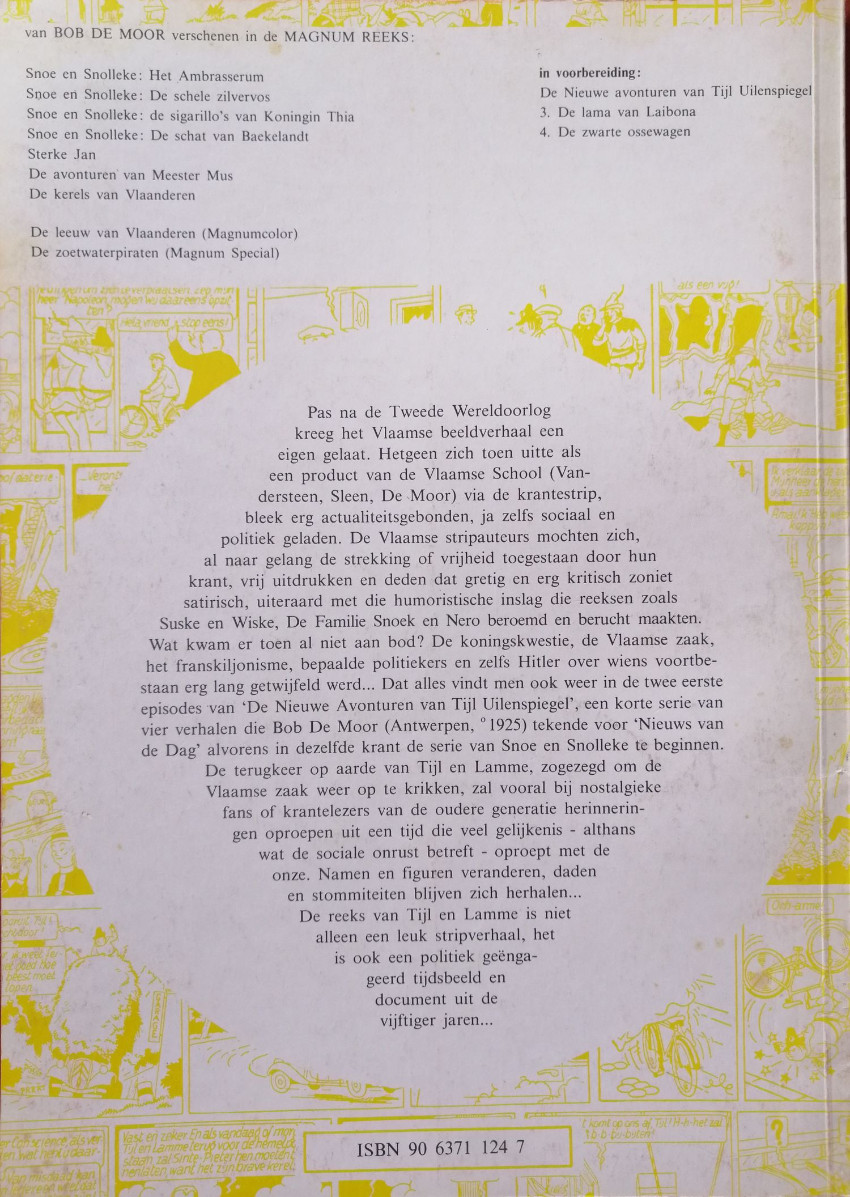 van BOB DE MOOR verschenen in de MAGNUM REEKS:
Snoe en Snolleke: Het Ambrasserum
Snoe en Snolleke: De schele zilvervos
Snoe en Snolleke: de sigarillo's van Koningin Thia
Snoe en Snolleke: De schat van Baekelandt
Sterke Jan
De avonturen van Meester Mus
De kerels van Vlaanderen
De leeuw van Vlaanderen (Magnumcolor)
De zoetwaterpiraten (Magnum Special)
in voorbereiding:
De Nieuwe avonturen van Tijl Uilenspiegel
3. De lama van Laibona
4. De zwarte ossewagen
heer Napoleon, mogen wij daareens opzit
ten?
Hela, vriend, stop eens!
als een vuist
Pas na de Tweede Wereldoorlog
kreeg het Vlaamse beeldverhaal een
eigen gelaat. Hetgeen zich toen uitte als
een product van de Vlaamse School (Van-
dersteen, Sleen, De Moor) via de krantestrip,
bleek erg actualiteitsgebonden, ja zelfs sociaal en
politiek geladen. De Vlaamse stripauteurs mochten zich,
al naar gelang de strekking of vrijheid toegestaan door hun
krant, vrij uitdrukken en deden dat gretig en erg kritisch zoniet
satirisch, uiteraard met die humoristische inslag die reeksen zoals
Suske en Wiske, De Familie Snoek en Nero beroemd en berucht maakten.
Wat kwam er toen al niet aan bod? De koningskwestie, de Vlaamse zaak,
het franskiljonisme, bepaalde politiekers en zelfs Hitler over wiens voortbe-
staan erg lang getwijfeld werd... Dat alles vindt men ook weer in de twee eerste
episodes van 'De Nieuwe Avonturen van Tijl Uilenspiegel', een korte serie van
vier verhalen die Bob De Moor (Antwerpen, °1925) tekende voor 'Nieuws van
de Dag' alvorens in dezelfde krant de serie van Snoe en Snolleke te beginnen.
De terugkeer op aarde van Tijl en Lamme, zogezegd om de
Vlaamse zaak weer op te krikken, zal vooral bij nostalgieke
fans of krantelezers van de oudere generatie herinnerin-
gen oproepen uit een tijd die veel gelijkenis - althans
wat de sociale onrust betreft - oproept met de
onze. Namen en figuren veranderen, daden
en stommiteiten blijven zich herhalen...
De reeks van Tijl en Lamme is niet
alleen een leuk stripverhaal, het
is ook een politiek geënga-
geerd tijdsbeeld en
document uit de
vijftiger jaren...
Och-arme
GARAGE
Vast en zeker. En als vandaag of morgen
Tijl en Lamme terug voor de hemel
staan, zal Sinte-Pieter hen moeten
want het zijn brave kerels
ISBN 90 6371 124 7
't komt op ons af, Tijl! H-h-het zal
b-b-b-bijten!
?